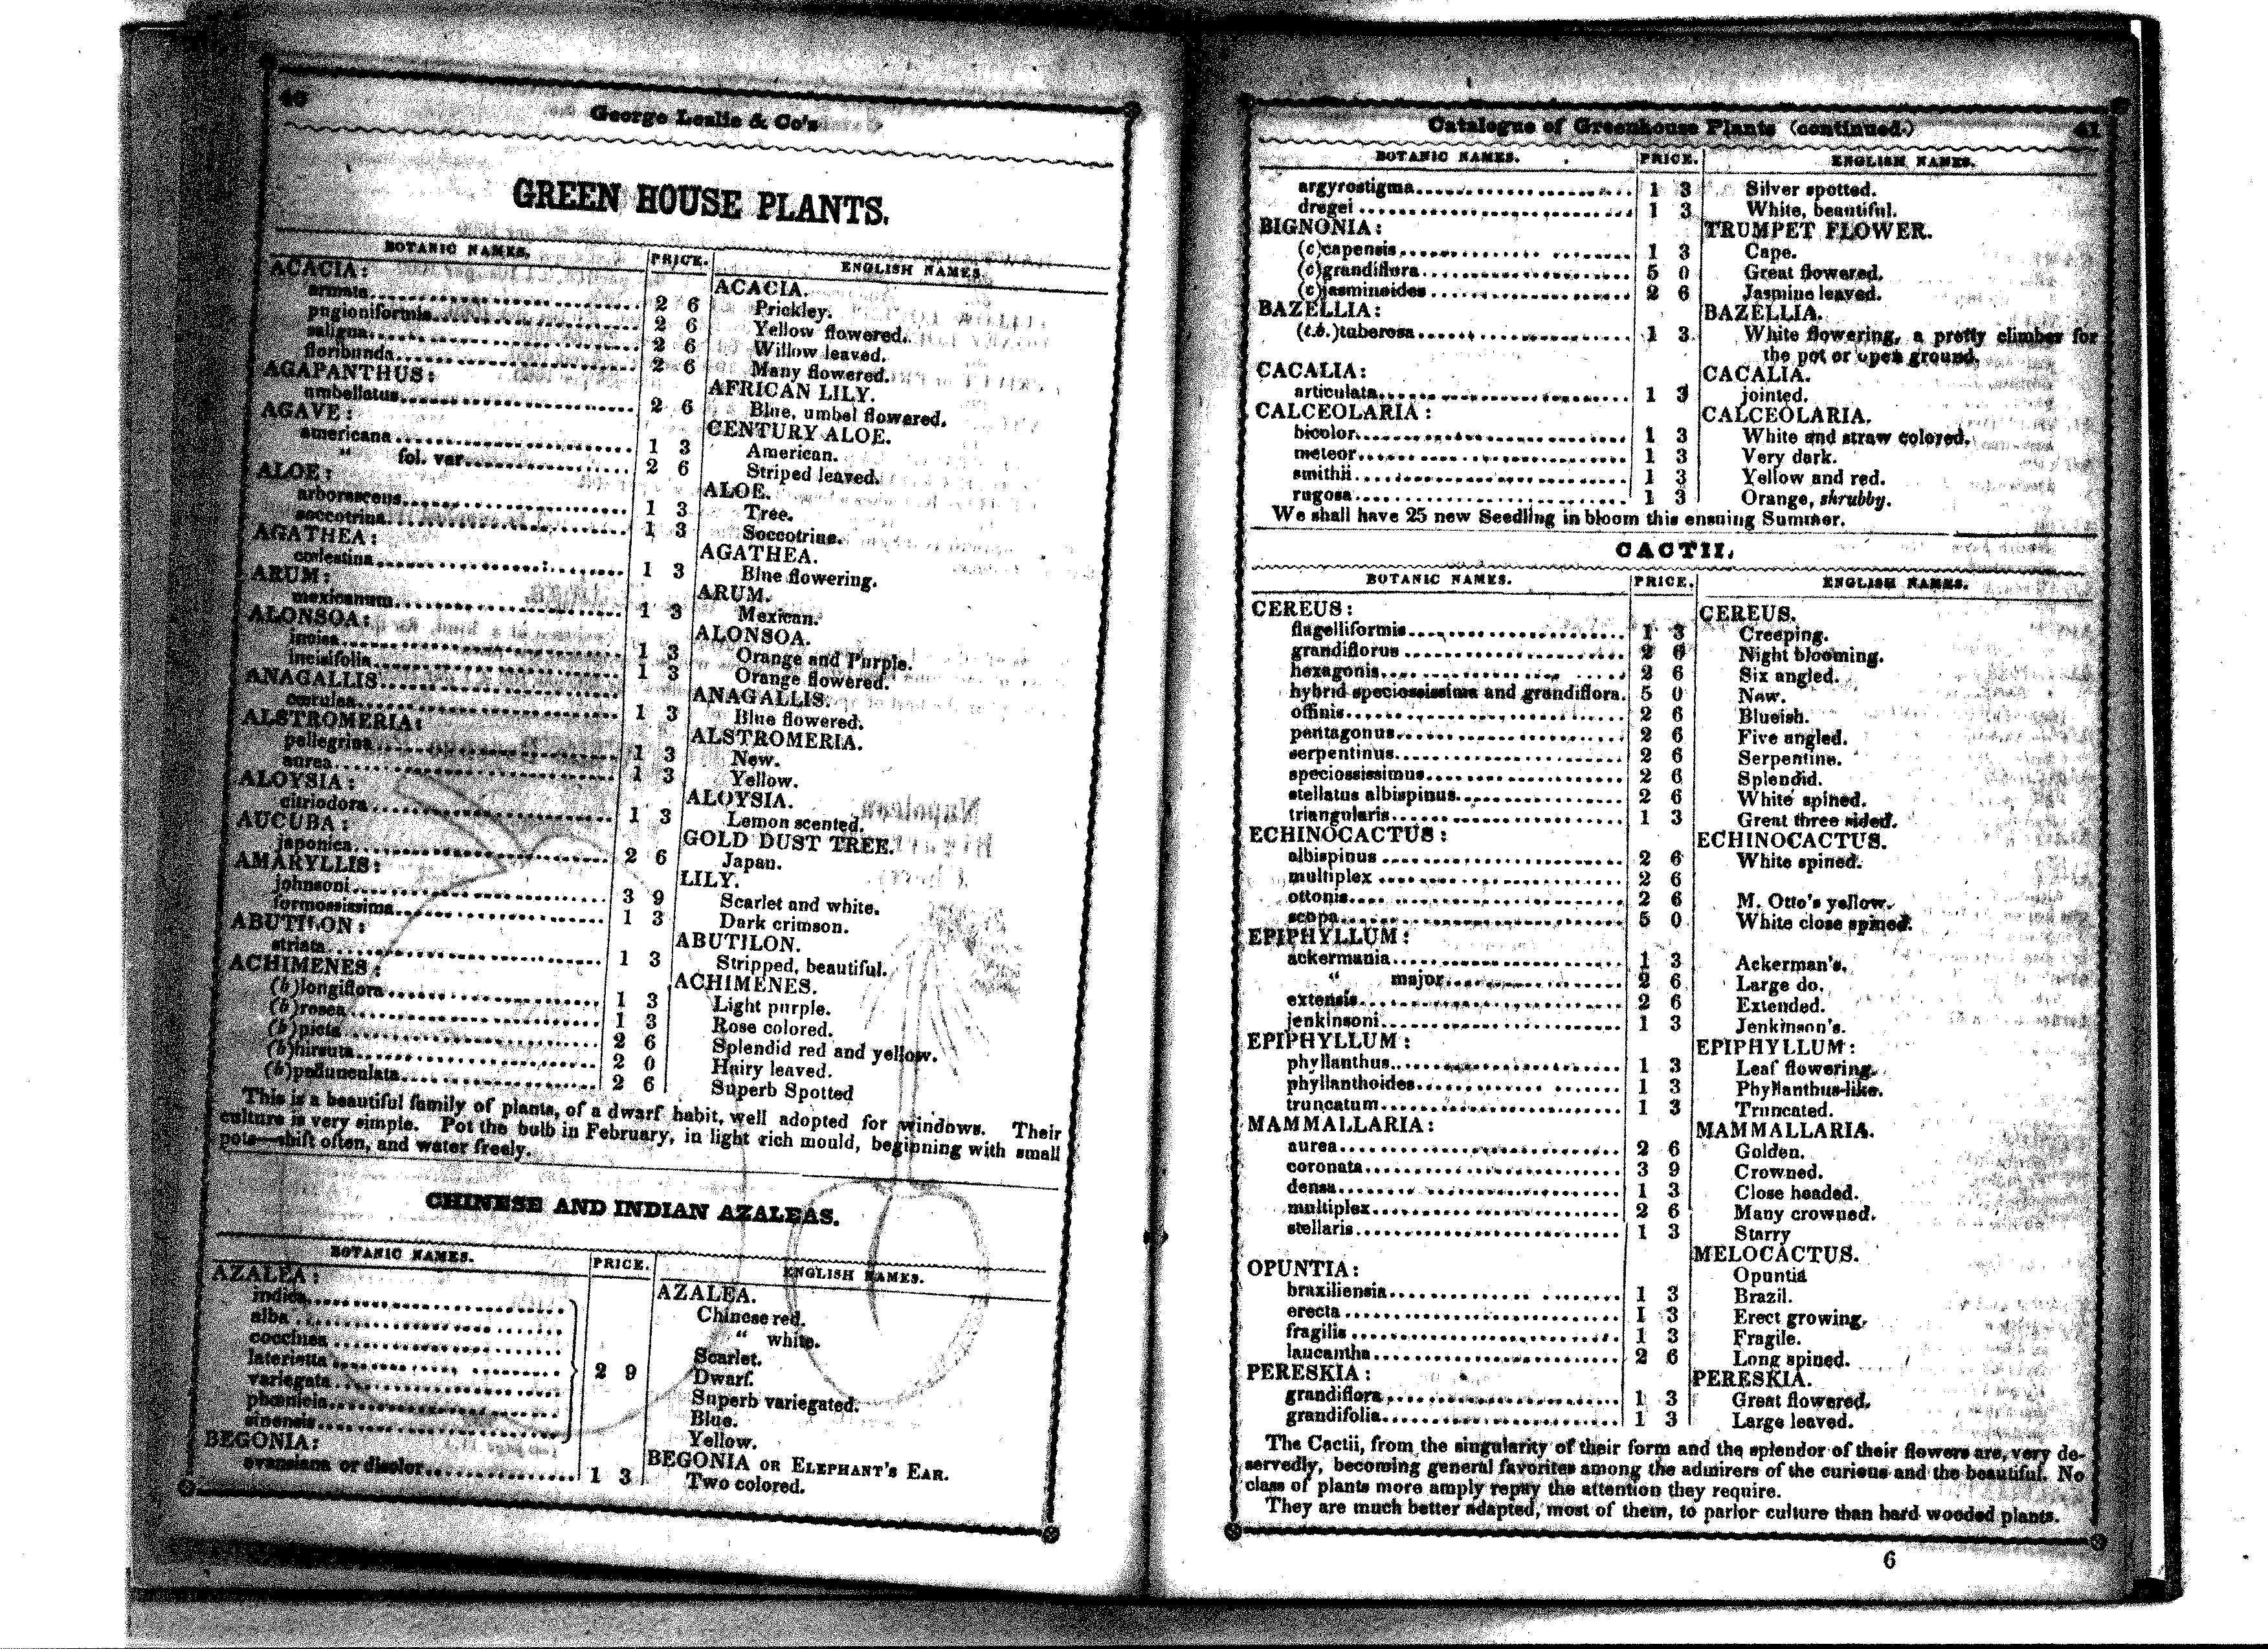 40
George Leslie & Co's
GREEN HOUSE PLANTS.
BOTANIC NAMES. PRICE. ENGLISH NAMES.
ACACIA: ACACIA.
armata 2 6 Prickley.
pugioniformis 2 6 Yellow flowered.
saligna 2 6 Willow leaved.
floribunda 2 6 Many flowered.
AGAPANTHUS: AFRICAN LILY.
umbellatus 2 6 Blue, umbel flowered.
AGAVE: CENTURY ALOE.
americana 1 3 American.
" fol. var. 2 6 Striped leaved.
ALOE: ALOE.
arborescens 1 3 Tree.
soccotrina 1 3 Soccotrine.
AGATHEA: AGATHEA.
coelestina 1 3 Blue flowering.
ARUM: ARUM.
mexicanum 1 3 Mexican.
ALONSOA: ALONSOA.
incisa 1 3 Orange and Purple.
incisifolia 1 3 Orange flowered.
ANAGALLIS ANAGALLIS.
cœrulea 1 3 Blue flowered.
ALSTROMERIA: ALSTROMERIA.
pellegrina 1 3 New.
aurea 1 3 Yellow.
ALOYSIA: ALOYSIA.
citriodora 1 3 Lemon scented.
AUCUBA: GOLD DUST TREE.
japonica 2 6 Japan.
AMARYLLIS: LILY.
johnsoni 3 9 Scarlet and white.
formossissima 1 3 Dark crimson.
ABUTILON: ABUTILON.
striata 1 3 Stripped, beautiful.
ACHIMENES: ACHIMENES.
(b)longiflora 1 3 Light purple.
(b)rosea 1 3 Rose colored.
(b)picta 2 6 Splendid red and yellow.
(b)hirsuta 2 0 Hairy leaved.
(b)pedunculata 2 6 Superb Spotted
This is a beautiful family of plants, of a dwarf habit, well adopted for windows. Their
culture is very simple. Pot the bulb in February, in light rich mould, beginning with small
pots—shift often, and water freely.
CHINESE AND INDIAN AZALEAS.
BOTANIC NAMES. PRICE. ENGLISH NAMES.
AZALEA: AZALEA.
indica Chinese red.
alba " white.
coccinea Scarlet.
laterietta 2 9 Dwarf.
variegata Superb variegated.
phœnicia Blue.
sinensis Yellow.
BEGONIA: BEGONIA OR ELEPHANT'S EAR.
evansiana or discolor 1 3 Two colored.
Catalogue of Greenhouse Plants (continued.) 41
BOTANIC NAMES. PRICE. ENGLISH NAMES.
argyrostigma 1 3 Silver spotted.
dregei 1 3 White, beautiful.
BIGNONIA: TRUMPET FLOWER.
(c)capensis 1 3 Cape.
(c)grandiflora 5 0 Great flowered.
(c)jasminoides 2 6 Jasmine leaved.
BAZELLIA: BAZELLIA.
(t.b.)tuberosa 1 3 White flowering, a pretty climber for
the pot or open ground.
CACALIA: CACALIA.
articulata 1 3 jointed.
CALCEOLARIA: CALCEOLARIA.
bicolor 1 3 White and straw colored.
meteor 1 3 Very dark.
smithii 1 3 Yellow and red.
rugosa 1 3 Orange, shrubby.
We shall have 25 new Seedling in bloom this ensuing Summer.
CACTII.
BOTANIC NAMES. PRICE. ENGLISH NAMES.
CEREUS: CEREUS.
flagelliformis 1 3 Creeping.
grandiflorus 2 6 Night blooming.
hexagonis 2 6 Six angled.
hybrid speciossissima and grandiflora. 5 0 New.
offinis 2 6 Blueish.
pentagonus 2 6 Five angled.
serpentinus 2 6 Serpentine.
speciossissimus 2 6 Splendid.
stellatus albispinus 2 6 White spined.
triangularis 1 3 Great three sided.
ECHINOCACTUS: ECHINOCACTUS.
albispinus 2 6 White spined.
multiplex 2 6
ottonis 2 6 M. Otto's yellow.
scopa 5 0 White close spined.
EPIPHYLLUM:
ackermania 1 3 Ackerman's.
" major 2 6 Large do.
extensis 2 6 Extended.
jenkinsoni 1 3 Jenkinson's.
EPIPHYLLUM: EPIPHYLLUM:
phyllanthus 1 3 Leaf flowering.
phyllanthoides 1 3 Phyllanthus-like.
truncatum 1 3 Truncated.
MAMMALLARIA: MAMMALLARIA.
aurea 2 6 Golden.
coronata 3 9 Crowned.
densa 1 3 Close headed.
multiplex 2 6 Many crowned.
stellaris 1 3 Starry
MELOCACTUS.
OPUNTIA: Opuntia
braxiliensia 1 3 Brazil.
erecta 1 3 Erect growing.
fragilis 1 3 Fragile.
laucantha 2 6 Long spined.
PERESKIA: PERESKIA.
grandiflora 1 3 Great flowered.
grandifolia 1 3 Large leaved.
The Cactii, from the singularity of their form and the splendor of their flowers are, very de-
servedly, becoming general favorites among the admirers of the curious and the beautiful. No
class of plants more amply repay the attention they require.
They are much better adapted, most of them, to parlor culture than hard wooded plants.
6